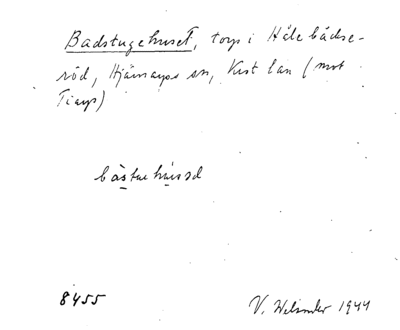 Badstugehuset, torp i Hålebäckse-
röd, Hjärnarps sn, Krist län (mot
Tåarp)
bàstuehúsəd
8455 V. Welander 1944